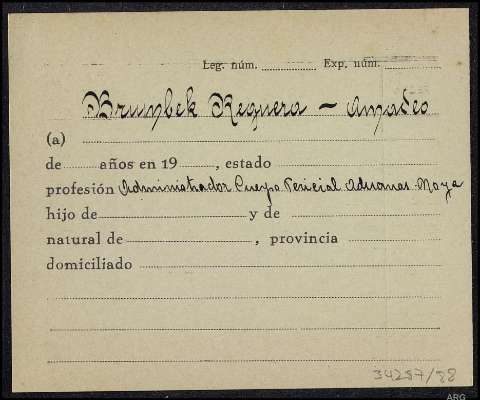 Leg. núm. Exp. núm.
Brunbek Reguera - Amadeo
(a)
de años en 19 , estado
profesión Administrador Cuerpo Pericial Aduanas. Moya
hijo de y de
natural de , provincia
domiciliado
34287/28
ARG